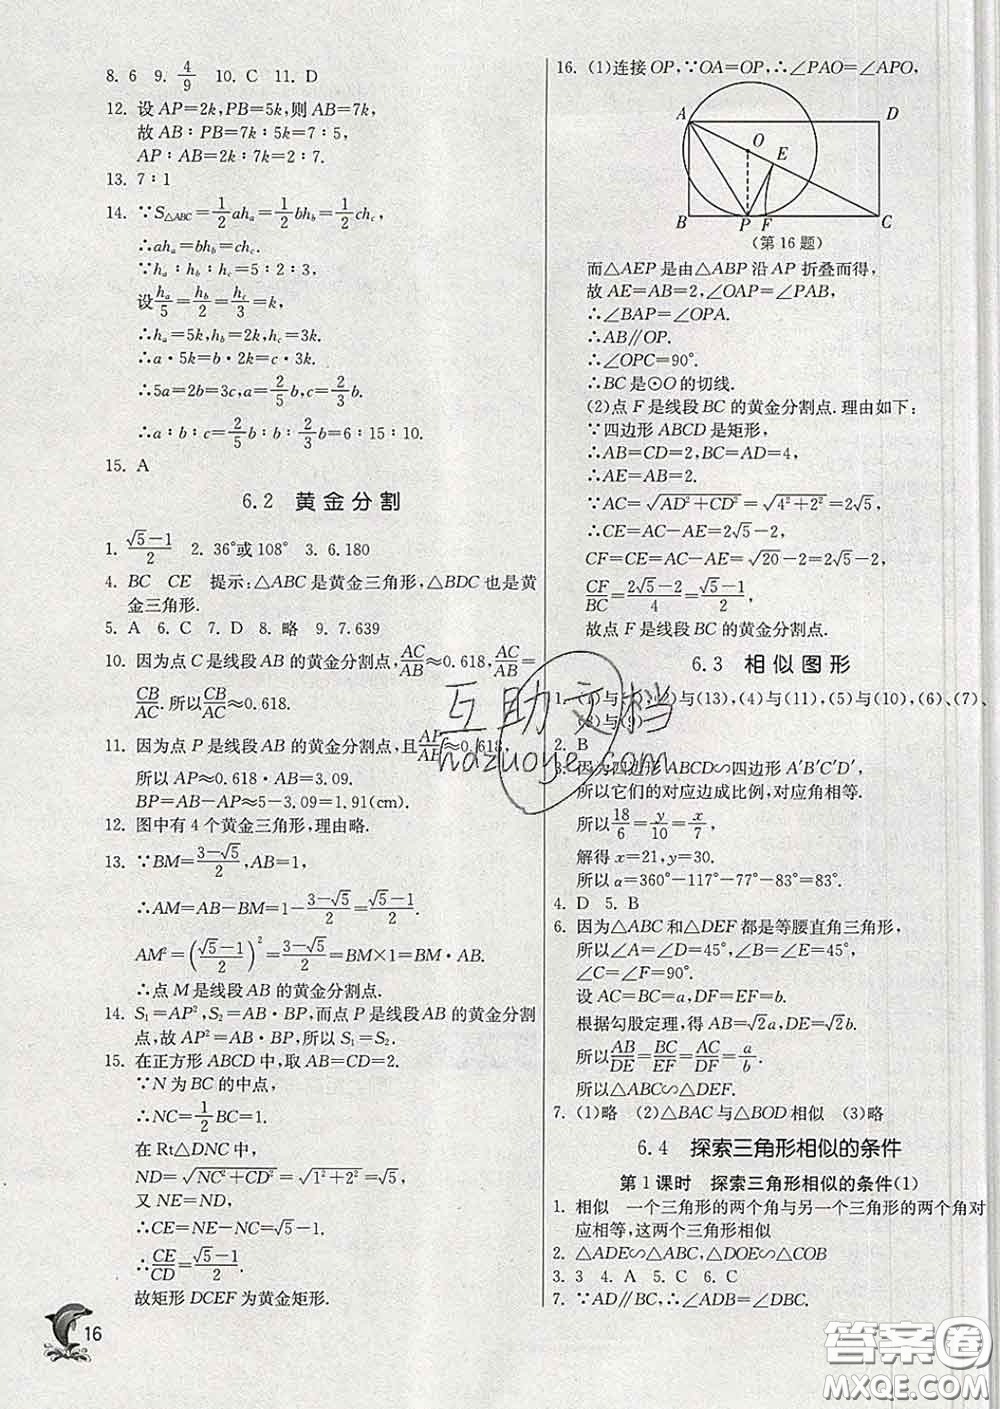 8. 6  9. 4/9  10. C  11. D
12. 设 AP=2k,PB=5k,则 AB=7k,
故 AB∶PB=7k∶5k=7∶5,
AP∶AB=2k∶7k=2∶7.
13. 7∶1
14. ∵S△ABC=1/2 ahₐ=1/2 bh_b=1/2 ch_c,
∴ahₐ=bh_b=ch_c.
∵hₐ∶h_b∶h_c=5∶2∶3,
设 hₐ/5=h_b/2=h_c/3=k,
∴hₐ=5k,h_b=2k,h_c=3k.
∴a·5k=b·2k=c·3k.
∴5a=2b=3c,a=2/5 b,c=2/3 b.
∴a∶b∶c=2/5 b∶b∶2/3 b=6∶15∶10.
15. A
6.2 黄金分割
1. (√5-1)/2  2. 36°或108°  3. 6.180
4. BC  CE  提示:△ABC是黄金三角形,△BDC也是黄
金三角形.
5. A  6. C  7. D  8. 略  9. 7.639
10. 因为点C是线段AB的黄金分割点,AC/AB≈0.618,AC/AB=
CB/AC.所以CB/AC≈0.618.
11. 因为点P是线段AB的黄金分割点,且AP/AB≈0.618,
所以 AP≈0.618·AB=3.09.
BP=AB-AP≈5-3.09=1.91(cm).
12. 图中有4个黄金三角形,理由略.
13. ∵BM=(3-√5)/2,AB=1,
∴AM=AB-BM=1-(3-√5)/2=(√5-1)/2.
AM²=((√5-1)/2)²=(3-√5)/2=BM×1=BM·AB.
∴点M是线段AB的黄金分割点.
14. S₁=AP²,S₂=AB·BP,而点P是线段AB的黄金分割
点,故 AP²=AB·BP,所以 S₁=S₂.
15. 在正方形ABCD中,取AB=CD=2.
∵N为BC的中点,
∴NC=1/2 BC=1.
在Rt△DNC中,
ND=√(NC²+CD²)=√(1²+2²)=√5.
又NE=ND,
∴CE=NE-NC=√5-1.
∴CE/CD=(√5-1)/2.
故矩形DCEF为黄金矩形.
16
16. (1)连接OP,∵OA=OP,∴∠PAO=∠APO,
A D
O
E
B P F C
(第16题)
而△AEP是由△ABP沿AP折叠而得,
故AE=AB=2,∠OAP=∠PAB,
∴∠BAP=∠OPA.
∴AB∥OP.
∴∠OPC=90°.
∴BC是⊙O的切线.
(2)点F是线段BC的黄金分割点.理由如下:
∵四边形ABCD是矩形,
∴AB=CD=2,BC=AD=4,
∴AE=AB=2.
∵AC=√(AD²+CD²)=√(4²+2²)=2√5,
∴CE=AC-AE=2√5-2,
CF=CE=AC-AE=√20-2=2√5-2,
CF/BC=(2√5-2)/4=(√5-1)/2,
故点F是线段BC的黄金分割点.
6.3 相似图形
与(13),(4)与(11),(5)与(10),(6)、(7)、
2. B
3. 因为四边形ABCD∽四边形A′B′C′D′,
所以它们的对应边成比例,对应角相等.
所以18/6=y/10=x/7,
解得x=21,y=30.
所以α=360°-117°-77°-83°=83°.
4. D  5. B
6. 因为△ABC和△DEF都是等腰直角三角形,
所以∠A=∠D=45°,∠B=∠E=45°,
∠C=∠F=90°.
设AC=BC=a,DF=EF=b.
根据勾股定理,得AB=√2a,DE=√2b.
所以AB/DE=BC/EF=AC/DF=a/b.
所以△ABC∽△DEF.
7. (1)略  (2)△BAC与△BOD相似  (3)略
6.4 探索三角形相似的条件
第1课时  探索三角形相似的条件(1)
1. 相似  一个三角形的两个角与另一个三角形的两个角对
应相等,这两个三角形相似
2. △ADE∽△ABC,△DOE∽△COB
3. 3  4. A  5. C  6. C
7. ∵AD∥BC,∴∠ADB=∠DBC.
互助文档
hdzuoye.com
答案圈
MXQE.COM